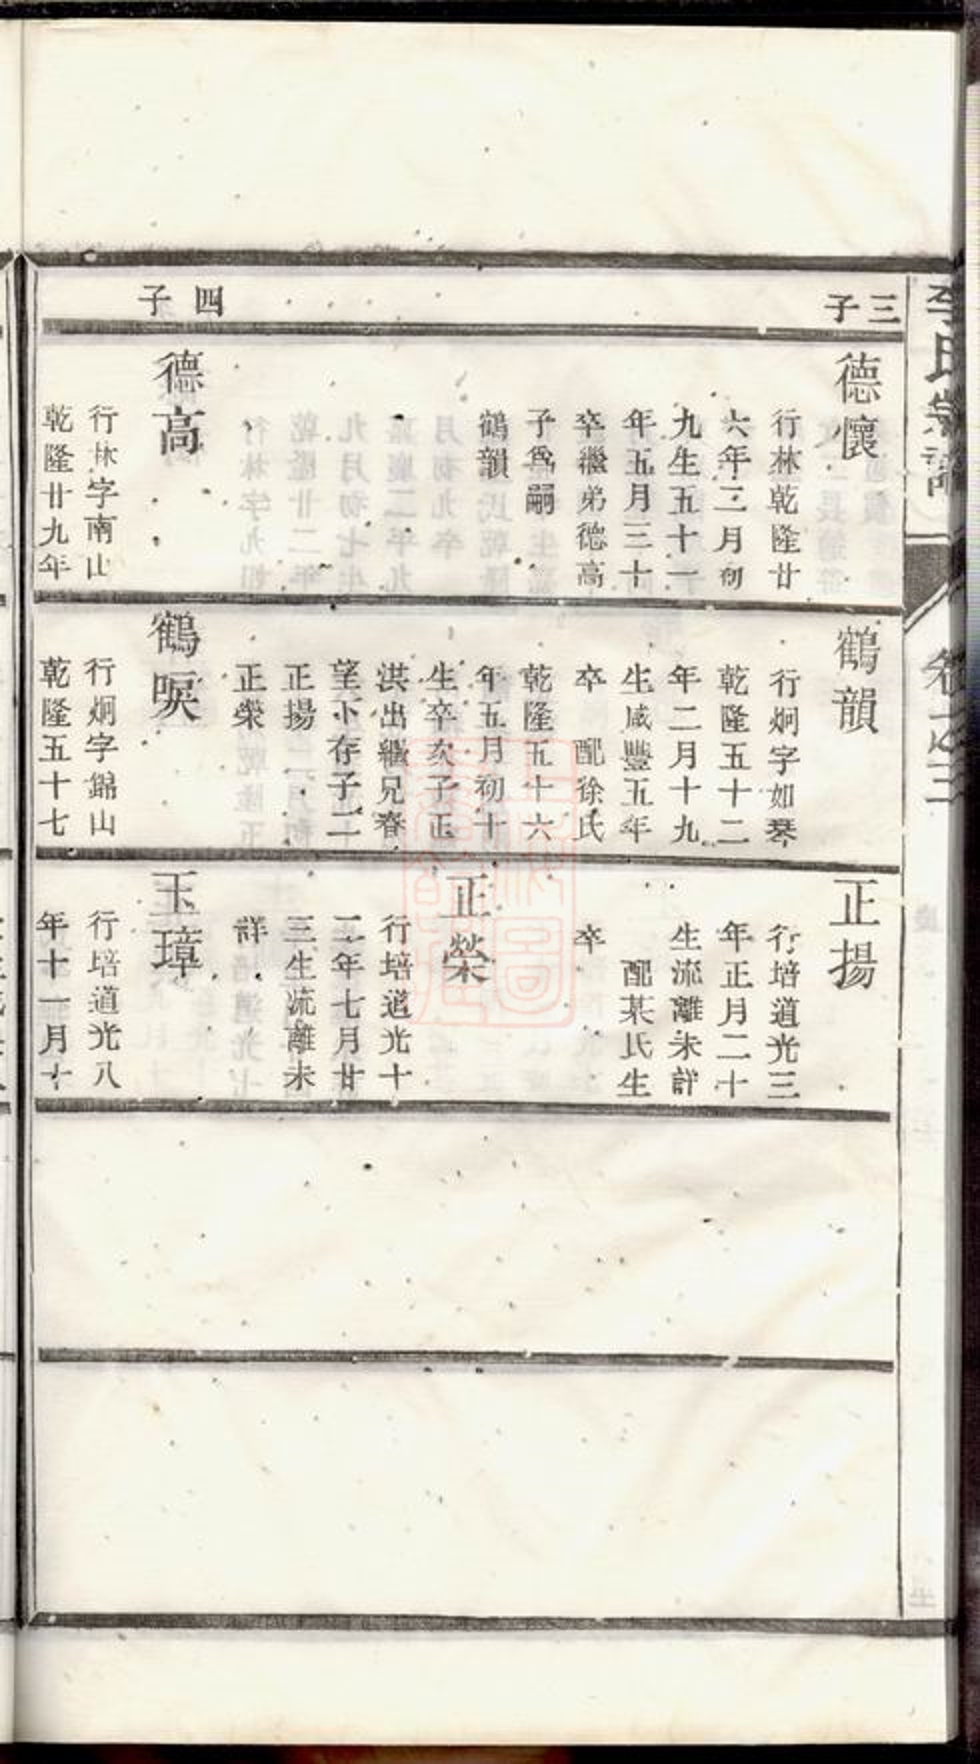 李氏宗譜
卷之三
三子
德懷
行林乾隆廿
六年三月初
九生五十一
年五月三十
卒繼弟德高
子爲嗣
鶴韻
四子
德高
行林字南山
乾隆廿九年
鶴韻
行炯字如琴
乾隆五十二
年二月十九
生咸豐五年
卒 配徐氏
乾隆五十六
年五月初十
生卒次子正
洪出繼兄春
望下存子二
正揚
正榮
鶴唳
行炯字錦山
乾隆五十七
正揚
行培道光三
年正月二十
生流離未詳
配某氏生
卒
正榮
行培道光十
二年七月廿
三生流離未
詳
玉璋
行培道光八
年十一月十